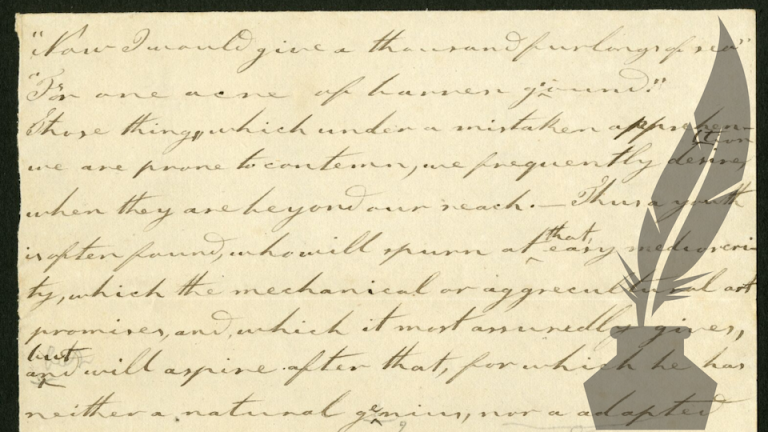 "Now I would give a thousand furlongs of sea"
"For one acre of barren ground."
Those things, which under a mistaken apprehension
we are prone to contemn, we frequently desire,
when they are beyond our reach.— Thus a youth
is often found, who will spurn at that easy mediocri-
ty, which the mechanical or aggrecultural art
promises, and, which it most assuredly gives,
but will aspire after that, for which he has
neither a natural genius, nor a adapted